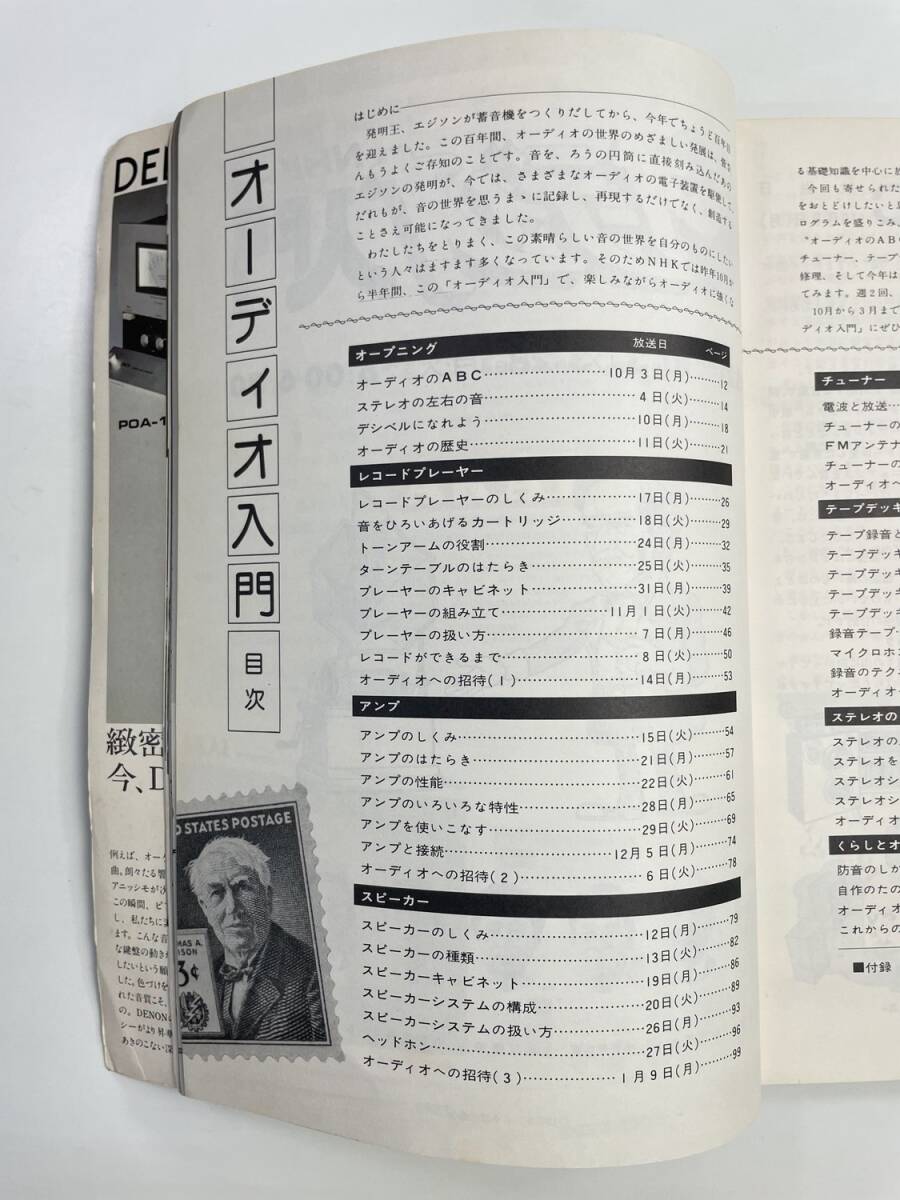 DE
POA-1
緻密
今、D
例えば、オー
曲。朗々たる響
アニッシモが
この瞬間、ピ
し、私たちに
ます。こんな音
な鍵盤の動き
したいという願
した。色づけを
れた音質こそ、
の。DENON
シーがより昇華
あきのこない深
オーディオ入門
目次
はじめに
発明王、エジソンが蓄音機をつくりだしてから、今年でちょうど百年目
を迎えました。この百年間、オーディオの世界のめざましい発展は、皆さ
んもうよくご存知のことです。音を、ろうの円筒に直接刻み込んだあの
エジソンの発明が、今では、さまざまなオーディオの電子装置を駆使して、
だれもが、音の世界を思うまゝに記録し、再現するだけでなく、創造する
ことさえ可能になってきました。
わたしたちをとりまく、この素晴らしい音の世界を自分のものにしたい
という人々はますます多くなっています。そのためNHKでは昨年10月か
ら半年間、この「オーディオ入門」で、楽しみながらオーディオに強くな
オープニング 放送日 ページ
オーディオのABC……………10月3日(月)………12
ステレオの左右の音……………4日(火)………14
デシベルになれよう……………10日(月)………18
オーディオの歴史……………11日(火)………21
レコードプレーヤー
レコードプレーヤーのしくみ……………17日(月)………26
音をひろいあげるカートリッジ……………18日(火)………29
トーンアームの役割……………24日(月)………32
ターンテーブルのはたらき……………25日(火)………35
プレーヤーのキャビネット……………31日(月)………39
プレーヤーの組み立て……………11月1日(火)………42
プレーヤーの扱い方……………7日(月)………46
レコードができるまで……………8日(火)………50
オーディオへの招待(1)……………14日(月)………53
アンプ
アンプのしくみ……………15日(火)………54
アンプのはたらき……………21日(月)………57
アンプの性能……………22日(火)………61
アンプのいろいろな特性……………28日(月)………65
アンプを使いこなす……………29日(火)………69
アンプと接続……………12月5日(月)………74
オーディオへの招待(2)……………6日(火)………78
スピーカー
スピーカーのしくみ……………12日(月)………79
スピーカーの種類……………13日(火)………82
スピーカーキャビネット……………19日(月)………86
スピーカーシステムの構成……………20日(火)………89
スピーカーシステムの扱い方……………26日(月)………93
ヘッドホン……………27日(火)………96
オーディオへの招待(3)……………1月9日(月)………99
D STATES POSTAGE
MAS A.
SON
3¢
る基礎知識を中心に放
今回も寄せられた
をおとどけしたいと
ログラムを盛りこみ、
"オーディオのAB
チューナー、テープ
修理、そして今年は
てみます。週2回、
10月から3月まで
ディオ入門」にぜひ
チューナー
電波と放送…
チューナーの
FMアンテナ
チューナーの
オーディオへ
テープデッキ
テープ録音と
テープデッキ
テープデッ
テープデッキ
テープデッ
録音テープ…
マイクロホン
録音のテク
オーディオ
ステレオの
ステレオの
ステレオを
ステレオシ
ステレオシ
オーディオ
くらしとオ
防音のしか
自作のたの
オーディオ
これからの
■付録